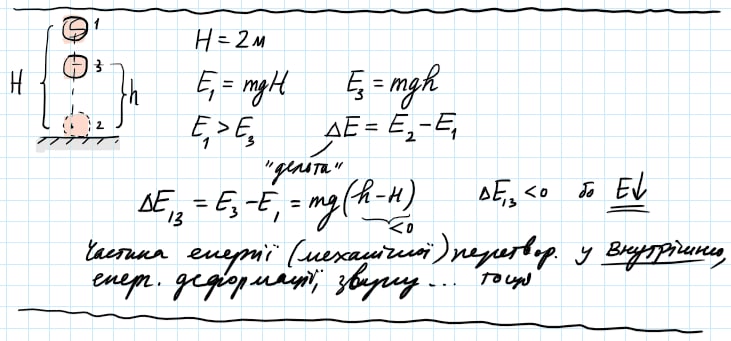 1
H = 2м
H
3
h
E₁ = mgH E₃ = mgh
2
E₁ > E₃ ΔE = E₂ − E₁
"дельта"
ΔE₁₃ = E₃ − E₁ = mg(h − H) ΔE₁₃ < 0 бо E↓
< 0
Частина енергії (механічної) перетвор. у внутрішню,
енерг. деформації, звуку ... тощо